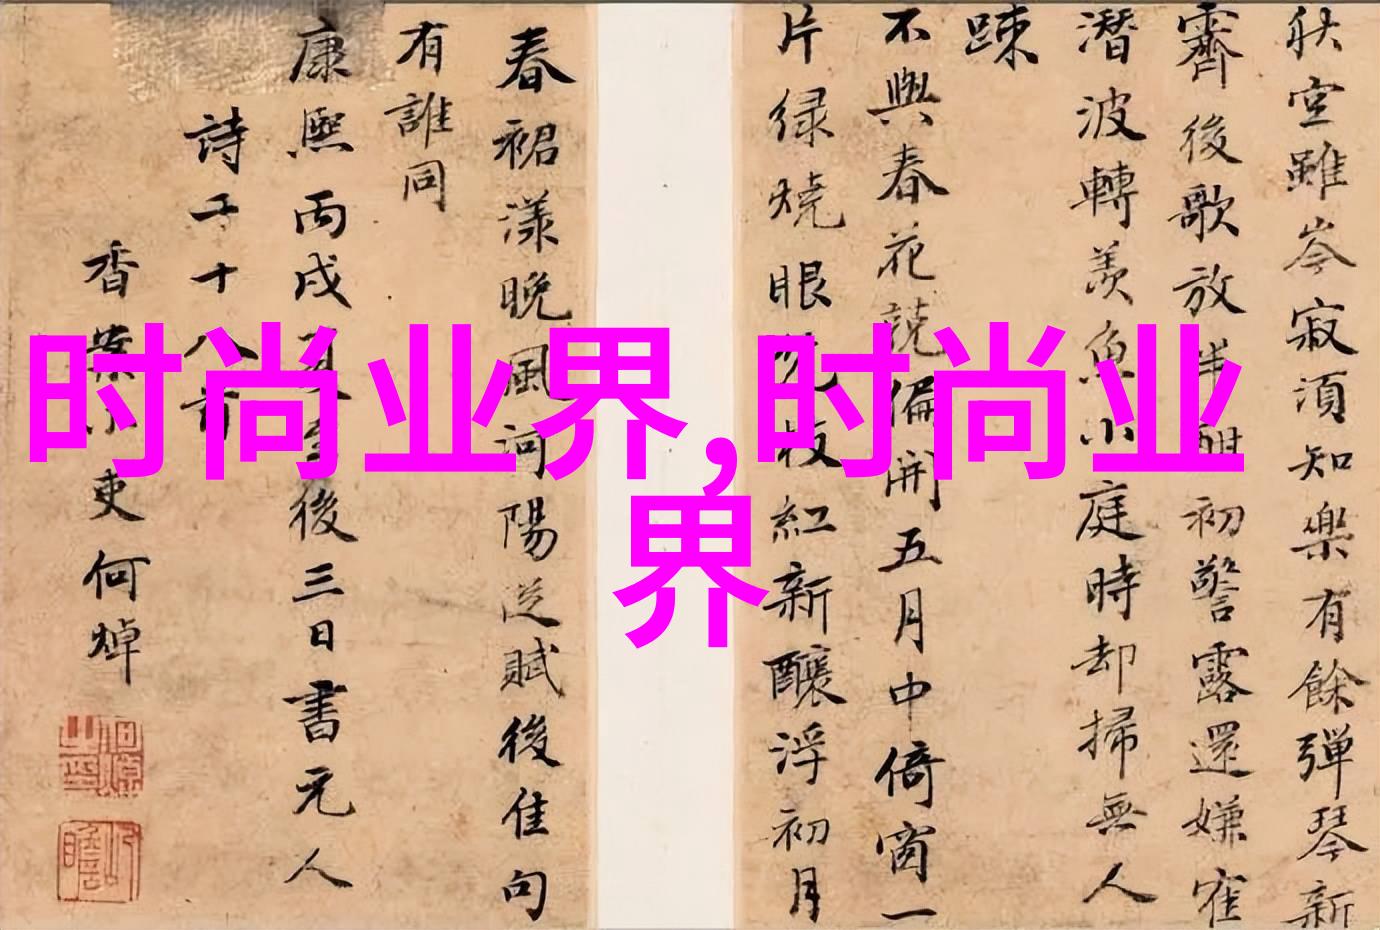 秋空雖岑寂須知樂有餘彈琴新
霽後歌放半酣初警露還嫌
潛波轉羨魚小庭時却掃無人
踈
不與春花競偏開五月中倚窗一
片緑燒眼 枝紅新釀浮初月
春裙漾晚風河陽 賦後佳句
有誰同
康熙丙戌 後三日書元人
詩二十八首
香案小吏何焯
时尚业界,时尚业
界